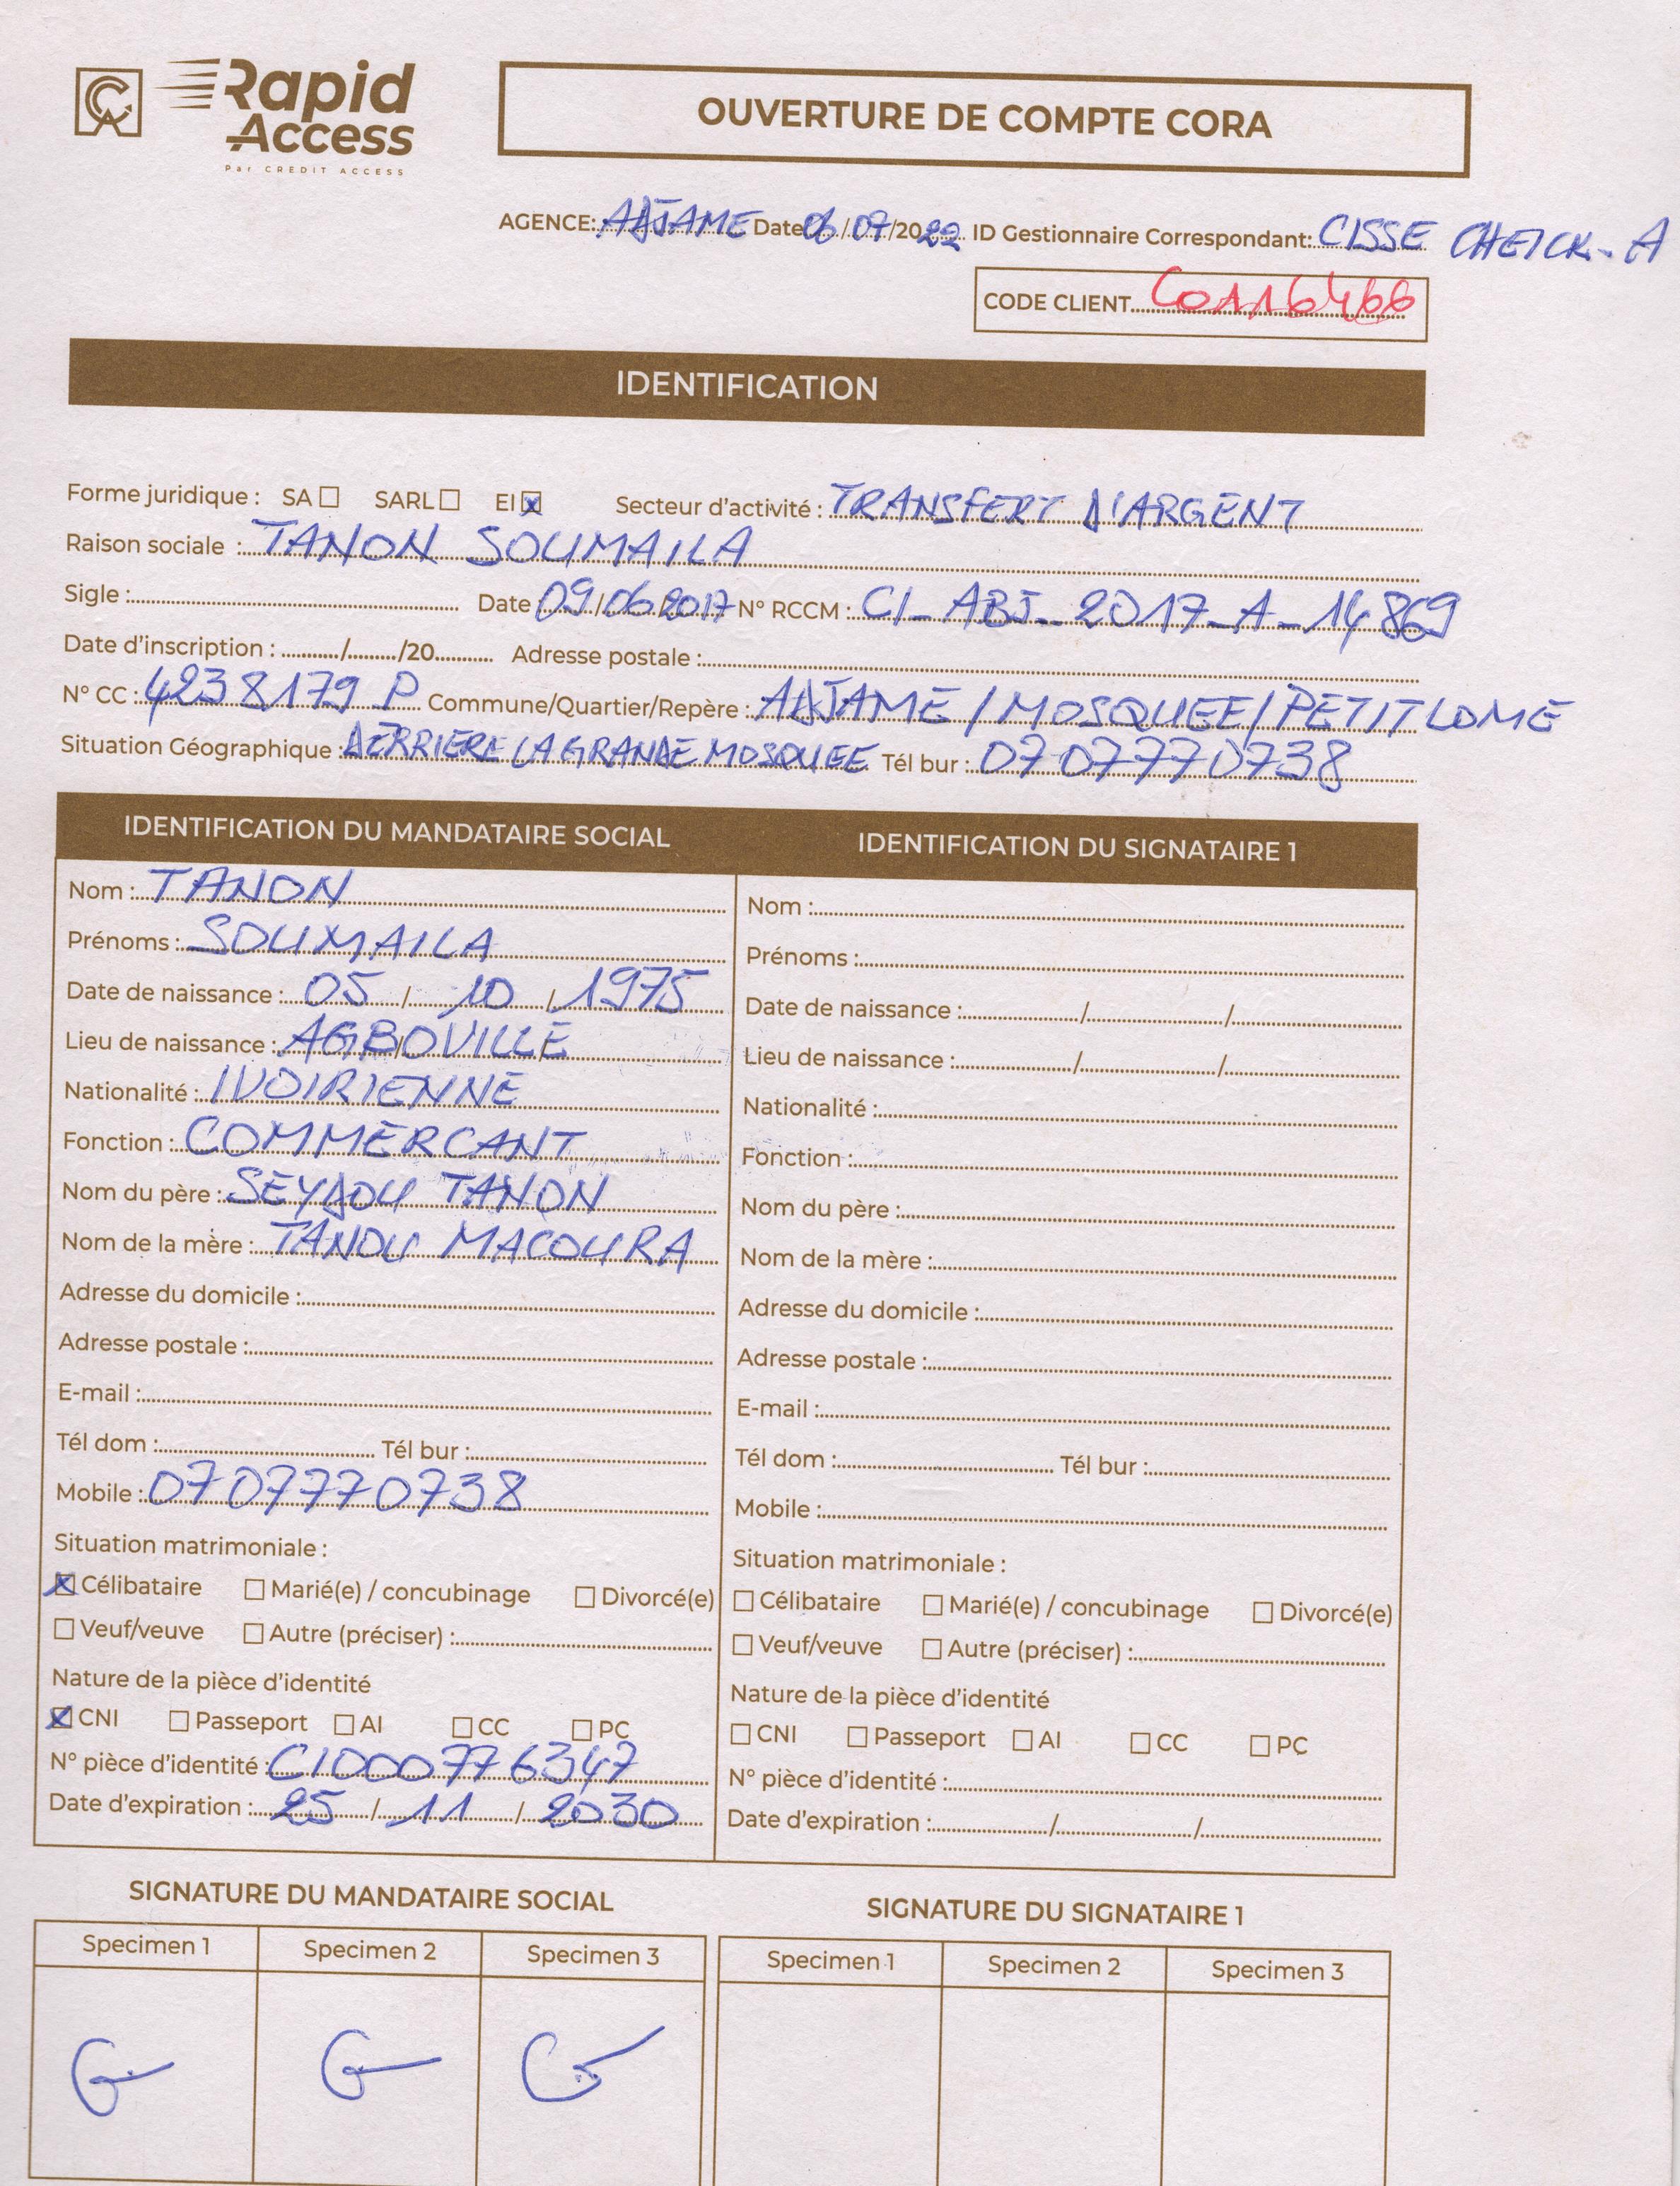 CA Rapid Access
Par CREDIT ACCESS
OUVERTURE DE COMPTE CORA
AGENCE: ADJAME Date 06/07/2022 ID Gestionnaire Correspondant: CISSE CHEICK-A
CODE CLIENT C0116466
IDENTIFICATION
Forme juridique : SA ☐ SARL ☐ EI ☒ Secteur d'activité : TRANSFERT D'ARGENT
Raison sociale : TANON SOUMAILA
Sigle : Date 09/06/2017 N° RCCM : CI-ABJ-2017-A-14869
Date d'inscription : ........../........./20........... Adresse postale :
N° CC : 4238179 P Commune/Quartier/Repère : ADJAME/MOSQUEE/PETIT LOME
Situation Géographique : DERRIERE LA GRANDE MOSQUEE Tél bur : 0707770738
IDENTIFICATION DU MANDATAIRE SOCIAL
Nom : TANON
Prénoms : SOUMAILA
Date de naissance : 05 / 10 / 1975
Lieu de naissance : AGBOVILLE
Nationalité : IVOIRIENNE
Fonction : COMMERCANT
Nom du père : SEYDOU TANON
Nom de la mère : TANOU MACOURA
Adresse du domicile :
Adresse postale :
E-mail :
Tél dom : Tél bur :
Mobile : 0707770738
Situation matrimoniale :
☒ Célibataire ☐ Marié(e) / concubinage ☐ Divorcé(e)
☐ Veuf/veuve ☐ Autre (préciser) :
Nature de la pièce d'identité
☒ CNI ☐ Passeport ☐ AI ☐ CC ☐ PC
N° pièce d'identité : CI000776347
Date d'expiration : 25 / 11 / 2030
IDENTIFICATION DU SIGNATAIRE 1
Nom :
Prénoms :
Date de naissance : / /
Lieu de naissance : / /
Nationalité :
Fonction :
Nom du père :
Nom de la mère :
Adresse du domicile :
Adresse postale :
E-mail :
Tél dom : Tél bur :
Mobile :
Situation matrimoniale :
☐ Célibataire ☐ Marié(e) / concubinage ☐ Divorcé(e)
☐ Veuf/veuve ☐ Autre (préciser) :
Nature de la pièce d'identité
☐ CNI ☐ Passeport ☐ AI ☐ CC ☐ PC
N° pièce d'identité :
Date d'expiration : / /
SIGNATURE DU MANDATAIRE SOCIAL
Specimen 1 Specimen 2 Specimen 3
SIGNATURE DU SIGNATAIRE 1
Specimen 1 Specimen 2 Specimen 3